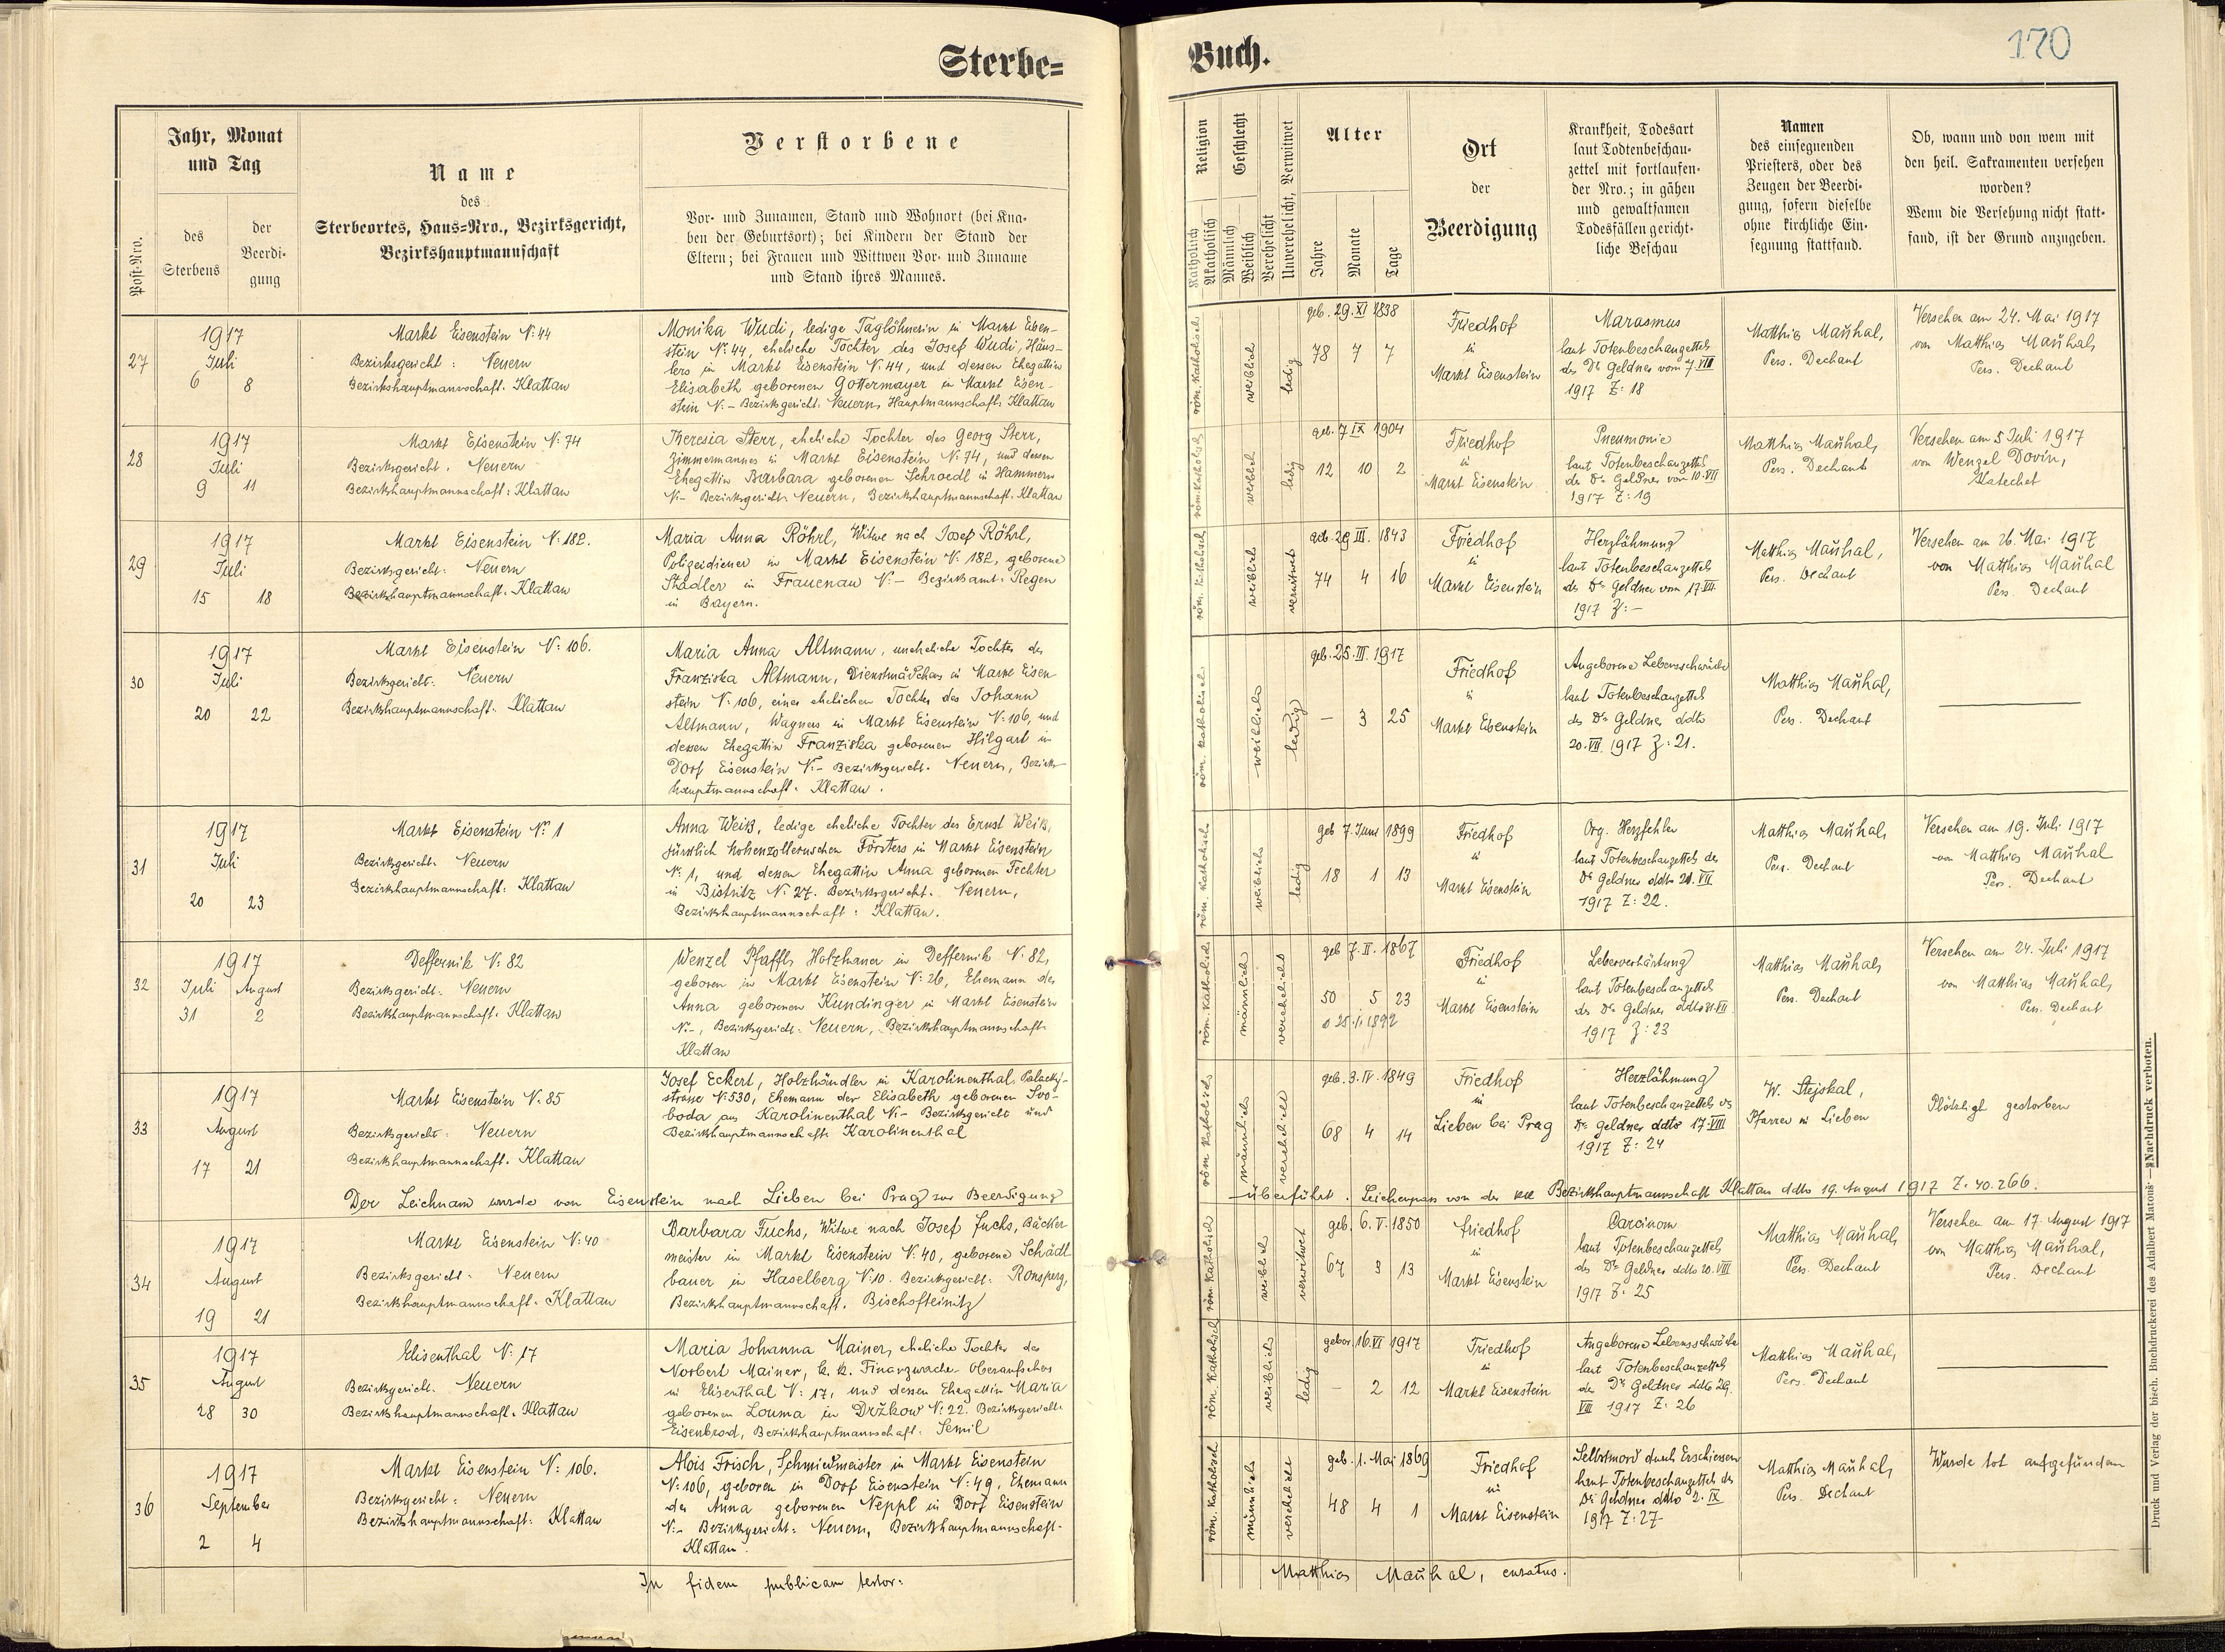 Sterbe=
Buch.
170
Post-Nro.
Jahr, Monat
und Tag
des
Sterbens
der
Beerdi-
gung
Name
des
Sterbeortes, Haus=Nro., Bezirksgericht,
Bezirkshauptmannschaft
Verstorbene
Vor- und Zunamen, Stand und Wohnort (bei Kna-
ben der Geburtsort); bei Kindern der Stand der
Eltern; bei Frauen und Wittwen Vor- und Zuname
und Stand ihres Mannes.
Religion
Katholisch
Akatholisch
Geschlecht
Männlich
Weiblich
Verehelicht
Unverehelicht, Verwitwet
Alter
Jahre
Monate
Tage
Ort
der
Beerdigung
Krankheit, Todesart
laut Todtenbeschau-
zettel mit fortlaufen-
der Nro.; in gähen
und gewaltsamen
Todesfällen gericht-
liche Beschau
Namen
des einsegnenden
Priesters, oder des
Zeugen der Beerdi-
gung, sofern dieselbe
ohne kirchliche Ein-
segnung stattfand.
Ob, wann und von wem mit
den heil. Sakramenten versehen
worden?
Wenn die Versehung nicht statt-
fand, ist der Grund anzugeben.
27
1917
Juli
6 8
Markt Eisenstein N: 44
Bezirksgericht: Neuern
Bezirkshauptmannschaft: Klattau
Monika Wudi, ledige Taglöhnerin in Markt Eisen-
stein N: 44, eheliche Tochter des Josef Wudi, Häus-
lers in Markt Eisenstein N: 44, und dessen Ehegattin
Elisabeth geborenen Gottermayer in Markt Eisen-
stein N: - Bezirksgericht: Neuern, Hauptmannschaft: Klattau
röm. katholisch
weiblich
ledig
geb. 29. XI 1838
78 7 7
Friedhof
in
Markt Eisenstein
Marasmus
laut Totenbeschauzettels
des Dr Geldner vom 7. VII
1917 Z: 18
Matthias Maũhal,
Pers. Dechant
Versehen am 24. Mai 1917
von Matthias Maũhal,
Pers. Dechant
28
1917
Juli
9 11
Markt Eisenstein N: 74
Bezirksgericht: Neuern
Bezirkshauptmannschaft: Klattau
Theresia Sterr, eheliche Tochter des Georg Sterr,
Zimmermannes in Markt Eisenstein N: 74, und dessen
Ehegattin Barbara geborenen Schroedl in Hammern
N: - Bezirksgericht: Neuern, Bezirkshauptmannschaft: Klattau
röm. katholisch
weiblich
ledig
geb. 7 IX 1904
12 10 2
Friedhof
in
Markt Eisenstein
Pneumonie
laut Totenbeschauzettels
des Dr Geldner vom 10. VII
1917 Z: 19
Matthias Maũhal,
Pers. Dechant
Versehen am 5 Juli 1917
von Wenzel Dovin,
Katechet
29
1917
Juli
15 18
Markt Eisenstein N: 182.
Bezirksgericht: Neuern
Bezirkshauptmannschaft: Klattau
Maria Anna Röhrl, Witwe nach Josef Röhrl,
Polizeidiener in Markt Eisenstein N: 182, geborene
Stadler in Frauenau N: - Bezirksamt: Regen
in Bayern.
röm. katholisch
weiblich
verwitwet
geb. 29 III. 1843
74 4 16
Friedhof
in
Markt Eisenstein
Herzlähmung
laut Totenbeschauzettels
des Dr Geldner vom 17. VII.
1917 Z: -
Matthias Maũhal,
Pers. Dechant
Versehen am 26. Mai 1917
von Matthias Maũhal
Pers. Dechant
30
1917
Juli
20 22
Markt Eisenstein N: 106.
Bezirksgericht: Neuern
Bezirkshauptmannschaft: Klattau
Maria Anna Altmann, uneheliche Tochter der
Franziska Altmann, Dienstmädchens in Markt Eisen
stein N: 106, einer ehelichen Tochter des Johann
Altmann, Wagners in Markt Eisenstein N: 106, und
dessen Ehegattin Franziska geborenen Hilgart in
Dorf Eisenstein N: - Bezirksgericht: Neuern, Bezirks-
hauptmannschaft: Klattau.
röm. katholisch
weiblich
ledig
geb. 25. III. 1917
- 3 25
Friedhof
in
Markt Eisenstein
Angeborene Lebensschwäche
laut Totenbeschauzettels
des Dr Geldner ddto
20. VII. 1917 Z: 21.
Matthias Maũhal,
Pers. Dechant
31
1917
Juli
20 23
Markt Eisenstein N: 1
Bezirksgericht: Neuern
Bezirkshauptmannschaft: Klattau
Anna Weiß, ledige eheliche Tochter des Ernst Weiß,
fürstlich hohenzollernschen Försters in Markt Eisenstein
N: 1, und dessen Ehegattin Anna geborenen Fechter
in Bistritz N: 27. Bezirksgericht: Neuern,
Bezirkshauptmannschaft: Klattau.
röm. katholisch
weiblich
ledig
geb 7. Juni 1899
18 1 13
Friedhof
in
Markt Eisenstein
Org. Herzfehler
laut Totenbeschauzettels des
Dr Geldner ddto 21. VII
1917 Z: 22.
Matthias Maũhal,
Pers. Dechant
Versehen am 19. Juli 1917
von Matthias Maũhal
Pers. Dechant
32
1917
Juli August
31 2
Deffernik N: 82
Bezirksgericht: Neuern
Bezirkshauptmannschaft: Klattau
Wenzel Pfaffl, Holzhauer in Deffernik N: 82,
geboren in Markt Eisenstein N: 26, Ehemann der
Anna geborenen Kundinger in Markt Eisenstein
N: -, Bezirksgericht: Neuern, Bezirkshauptmannschaft:
Klattau
röm. katholisch
männlich
verehelicht
geb 7. II. 1867
50 5 23
1892
Friedhof
in
Markt Eisenstein
Leberverhärtung
laut Totenbeschauzettels
des Dr Geldner ddto 31. VII
1917 Z: 23
Matthias Maũhal,
Pers. Dechant
Versehen am 24. Juli 1917
von Matthias Maũhal,
Pers. Dechant
33
1917
August
17 21
Markt Eisenstein N: 85
Bezirksgericht: Neuern
Bezirkshauptmannschaft: Klattau
Josef Eckert, Holzhändler in Karolinenthal, Palacky-
strasse N: 530, Ehemann der Elisabeth geborenen Svo-
boda aus Karolinenthal N: - Bezirksgericht und
Bezirkshauptmannschaft: Karolinenthal
röm. katholisch
männlich
verehelicht
geb. 3. IV. 1849
68 4 14
Friedhof
in
Lieben bei Prag
Herzlähmung
laut Totenbeschauzettels des
Dr Geldner ddto 17. VIII
1917 Z: 24
W. Stejskal,
Pfarrer in Lieben
Plötzlich gestorben
Der Leichnam wurde von Eisenstein nach Lieben bei Prag zur Beerdigung
überführt. Leichenpass von der kk Bezirkshauptmannschaft Klattau ddto 19. August 1917 Z. 40.266.
34
1917
August
19 21
Markt Eisenstein N: 40
Bezirksgericht: Neuern
Bezirkshauptmannschaft: Klattau
Barbara Fuchs, Witwe nach Josef Fuchs, Bäcker
meister in Markt Eisenstein N: 40, geborene Schädl
bauer in Haselberg N: 10. Bezirksgericht: Ronsperg,
Bezirkshauptmannschaft: Bischofteinitz
röm. katholisch
weiblich
verwitwet
geb. 6. V. 1850
67 3 13
Friedhof
in
Markt Eisenstein
Carcinom
laut Totenbeschauzettels
des Dr Geldner ddto 20. VIII
1917 Z: 25
Matthias Maũhal,
Pers. Dechant
Versehen am 17. August 1917
von Matthias Maũhal,
Pers. Dechant
35
1917
August
28 30
Elisenthal N: 17
Bezirksgericht: Neuern
Bezirkshauptmannschaft: Klattau
Maria Johanna Mainer, eheliche Tochter des
Norbert Mainer, k. k. Finanzwache-Oberaufsehers
in Elisenthal N: 17, und dessen Ehegattin Maria
geborenen Louma in Držkow N: 22. Bezirksgericht:
Eisenbrod, Bezirkshauptmannschaft: Semil
röm. katholisch
weiblich
ledig
gebor. 16. VI 1917
- 2 12
Friedhof
in
Markt Eisenstein
Angeborene Lebensschwäche
laut Totenbeschauzettels
des Dr Geldner ddto 29.
VIII 1917 Z: 26
Matthias Maũhal,
Pers. Dechant
36
1917
September
2 4
Markt Eisenstein N: 106.
Bezirksgericht: Neuern
Bezirkshauptmannschaft: Klattau
Alois Frisch, Schmiedmeister in Markt Eisenstein
N: 106, geboren in Dorf Eisenstein N: 49, Ehemann
der Anna geborenen Neppl in Dorf Eisenstein
N: - Bezirksgericht: Neuern, Bezirkshauptmannschaft:
Klattau.
röm. katholisch
männlich
verehelicht
geb. 1. Mai 1869
48 4 1
Friedhof
in
Markt Eisenstein
Selbstmord durch Erschiessen
laut Totenbeschauzettels des
Dr Geldner ddto 2. IX
1917 Z: 27
Matthias Maũhal,
Pers. Dechant
Wurde tot aufgefunden
In fidem publicam testor:
Matthias Maũhal, curatus.
Druck und Verlag der bisch. Buchdruckerei des Adalbert Matous — Nachdruck verboten.